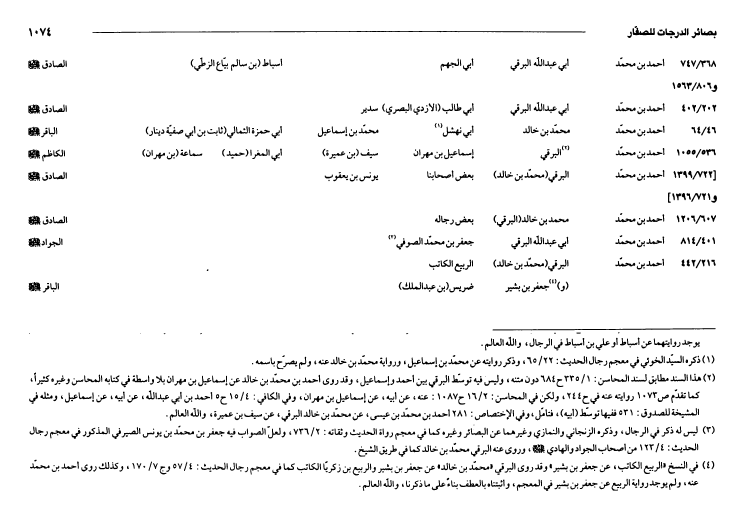 بصائر الدرجات للصفّار ١٠٧٤
٧٤٧/٣٦٨ احمد بن محمّد أبي عبداللّه البرقي أبي الجهم أسباط (بن سالم بيّاع الزطّي) الصادق
و١٥٦٣/٨٠٦
٤٠٢/٢٠٢ احمد بن محمّد أبي عبداللّه البرقي أبي طالب (الأزدي البصري) سدير الصادق
٦٤/٤٦ احمد بن محمّد محمّد بن خالد أبي نهشل(١) محمّد بن إسماعيل أبي حمزة الثمالي (ثابت بن أبي صفيّة دينار) الباقر
١٠٥٥/٥٣٦ احمد بن محمّد البرقي(٢) إسماعيل بن مهران سيف (بن عميرة) أبي المغرا (حميد) سماعة (بن مهران) الكاظم
[١٣٩٩/٧٢٢ احمد بن محمّد البرقي (محمّد بن خالد) بعض أصحابنا يونس بن يعقوب الصادق
و١٣٩٦/٧٢١]
١٢٠٦/٦٠٧ احمد بن محمّد محمد بن خالد (البرقي) بعض رجاله الصادق
٨١٤/٤٠١ احمد بن محمّد أبي عبداللّه البرقي جعفر بن محمّد الصوفي(٣) الجواد
٤٤٢/٢١٦ احمد بن محمّد البرقي (محمّد بن خالد) الربيع الكاتب
(و)(٤) جعفر بن بشير ضريس (بن عبدالملك) الباقر
يوجد روايتهما عن أسباط أو علي بن أسباط في الرجال، واللّه العالم.
(١) ذكره السيّد الخوئي في معجم رجال الحديث: ٦٥/٢٢، وذكر روايته عن محمّد بن إسماعيل، ورواية محمّد بن خالد عنه، ولم يصرّح باسمه.
(٢) هذا السند مطابق لسند المحاسن: ٣٣٥/١ ح٦٨٤ دون متنه، وليس فيه توسّط البرقي بين أحمد وإسماعيل، وقد روى أحمد بن محمّد بن خالد عن إسماعيل بن مهران بلا واسطة في كتابه المحاسن وغيره كثيراً،
كما تقدّم ص١٠٧٣ روايته عنه في ح٢٤٤، ولكن في المحاسن: ١٦/٢ ح١٠٨٧: عنه، عن أبيه، عن إسماعيل بن مهران، وفي الكافي: ١٥/٤ ح٥ احمد بن أبي عبداللّه، عن أبيه، عن إسماعيل، ومثله في
المشيخة للصدوق: ٥٣١ ففيها توسّط (أبيه)، فتامّل، وفي الإختصاص: ٢٨١ احمد بن محمّد بن عيسى، عن محمّد بن خالد البرقي، عن سيف بن عميرة، واللّه العالم.
(٣) ليس له ذكر في الرجال، وذكره الزنجاني والنمازي وغيرهما عن البصائر وغيره كما في معجم رواة الحديث وثقاته: ٧٣٦/٢، ولعلّ الصواب فيه جعفر بن محمّد بن يونس الصيرفي المذكور في معجم رجال
الحديث: ١٢٣/٤ من أصحاب الجواد والهادي، وروى عنه البرقي محمّد بن خالد كما في طريق الشيخ.
(٤) في النسخ «الربيع الكاتب، عن جعفر بن بشير» وقد روى البرقي «محمّد بن خالد» عن جعفر بن بشير والربيع بن زكريّا الكاتب كما في معجم رجال الحديث: ٥٧/٤ وج١٧٠/٧، وكذلك روى أحمد بن محمّد
عنه، ولم يوجد رواية الربيع عن جعفر بن بشير في المعجم، وأثبتناه بالعطف بناءً على ما ذكرنا، واللّه العالم.